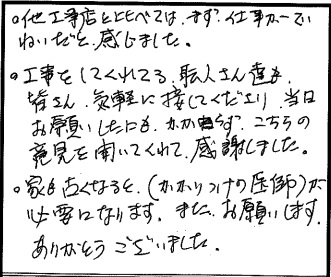 。他工事店とくらべては、まず、仕事がてい
ねいだと、感じました。
。工事をしてくれてる、職人さん達も、
皆さん、気軽に接してくださり、当日
お願いしたにも、かかわらず、こちらの
意見を聞いてくれて、感謝しました。
。家も古くなると、(かかりつけの医師)が
必要になります。また、お願いします。
ありがとうございました。